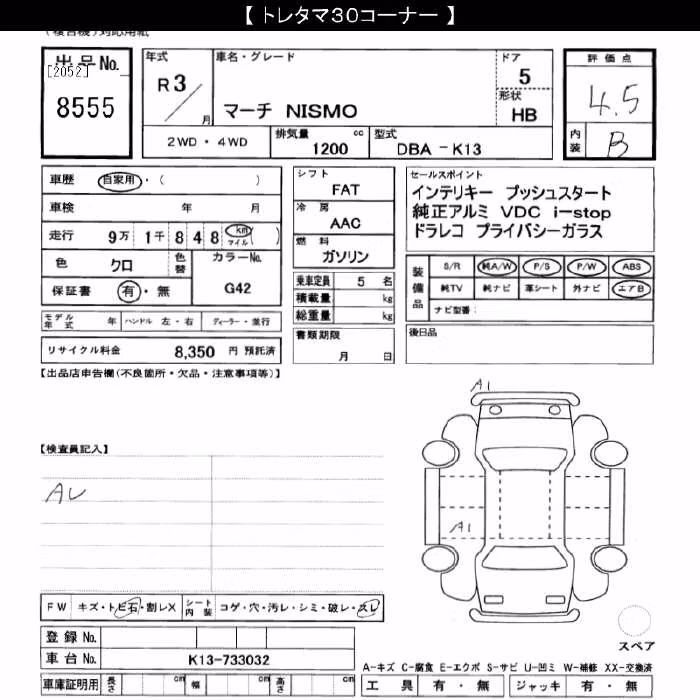 【 トレタマ30コーナー 】
(複合機)対応用紙
出品No.
[2052]
8555
年式
R3/
月
車名・グレード
マーチ NISMO
ドア
5
形状
HB
評価点
4.5
内装
B
2WD・4WD
排気量
cc
1200
型式
DBA-K13
車歴
自家用・( )
車検 年 月
走行 9万 1千 8 4 8 km マイル ( )
色 クロ
色替
カラーNo.
G42
保証書 有・無
モデル年式 年
ハンドル 左・右
ディーラー・並行
リサイクル料金 8,350 円 預託済
シフト
FAT
冷房
AAC
燃料
ガソリン
乗車定員 5 名
積載量 kg
総重量 kg
書類期限
月 日
セールスポイント
インテリキー プッシュスタート
純正アルミ VDC i-stop
ドラレコ プライバシーガラス
装備品
S/R 純A/W P/S P/W ABS
純TV 純ナビ 革シート 外ナビ エアB
ナビ型番:
後日品
【出品店申告欄(不良箇所・欠品・注意事項等)】
【検査員記入】
A1
A1
FW キズ・トビ石・割レX
シート内装 コゲ・穴・汚レ・シミ・破レ・スレ
登録No.
車台No. K13-733032
車庫証明用 長さ cm 幅 cm 高さ cm
スペア
A-キズ C-腐食 E-エクボ S-サビ U-凹ミ W-補修 XX-交換済
工具 有・無 ジャッキ 有・無